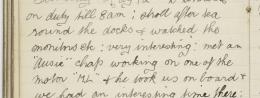 on duty till 8am; stroll after tea
round the docks & watched the
; very interesting; met an
"Aussie" chap working on one of the
motor "ML" & he took us on board &
we had an interesting time there: